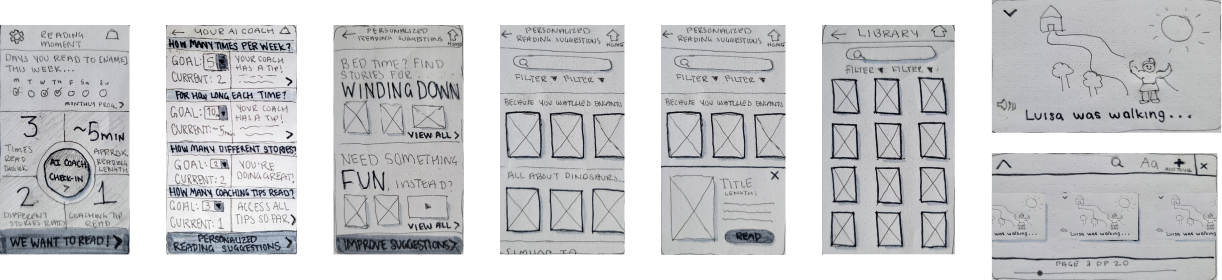 READING
MOMENT
DAYS YOU READ TO [NAME]
THIS WEEK...
M T W TH F SA SU
MONTHLY PROG. >
3
TIMES
READ
~5MIN
APPROX.
READING
LENGTH
AI COACH
CHECK-IN
>
2
DIFFERENT
STORIES READ
1
COACHING TIP
READ
WE WANT TO READ! >
← YOUR AI COACH
HOW MANY TIMES PER WEEK?
GOAL: 5
CURRENT: 2
YOUR COACH
HAS A TIP!
>
FOR HOW LONG EACH TIME?
GOAL: 10
CURRENT: ~5
YOUR COACH
HAS A TIP!
>
HOW MANY DIFFERENT STORIES?
GOAL: 2
CURRENT: 2
YOU'RE
DOING GREAT!
HOW MANY COACHING TIPS READ?
GOAL: 3
CURRENT: 1
ACCESS ALL
TIPS SO FAR >
PERSONALIZED
READING SUGGESTIONS >
← PERSONALIZED
READING SUGGESTIONS
HOME
BED TIME? FIND
STORIES FOR
WINDING DOWN
VIEW ALL >
NEED SOMETHING
FUN, INSTEAD?
VIEW ALL >
IMPROVE SUGGESTIONS >
← PERSONALIZED
READING SUGGESTIONS
HOME
FILTER ▼ FILTER ▼
BECAUSE YOU WATCHED ENCANTO
ALL ABOUT DINOSAURS...
SIMILAR TO
← PERSONALIZED
READING SUGGESTIONS
HOME
FILTER ▼ FILTER ▼
BECAUSE YOU WATCHED ENCANTO
TITLE
LENGTH:
X
READ
← LIBRARY
HOME
FILTER ▼ FILTER ▼
Luisa was walking...
Aa
+
X
was walking...
Luisa was walking...
Luisa was walking...
PAGE 3 OF 20